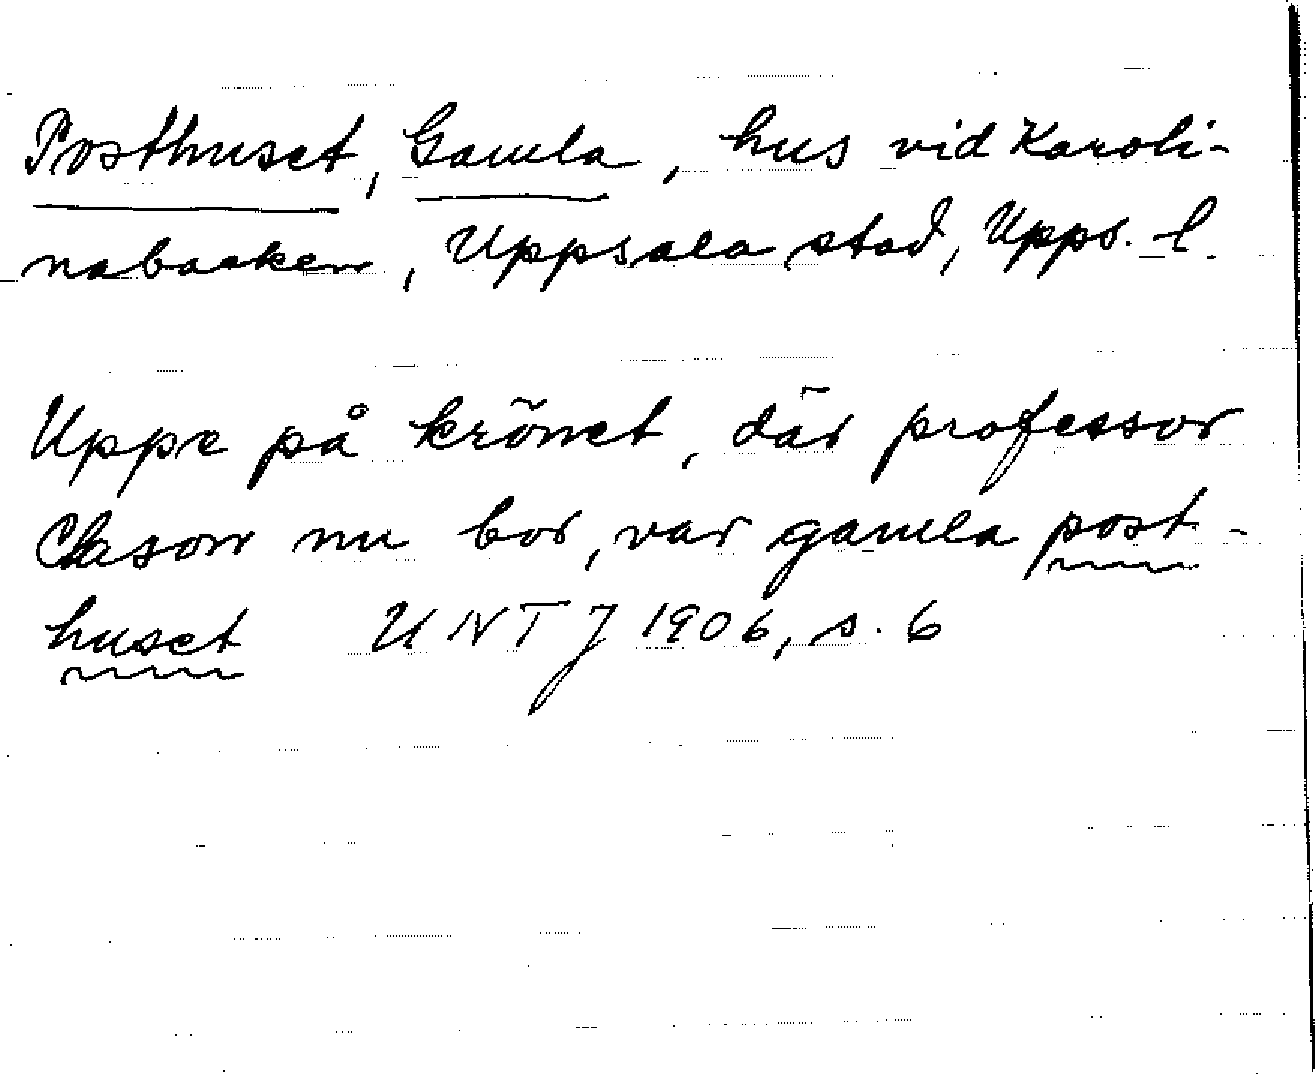 Posthuset, Gamla, hus vid Karoli-
nabacken, Uppsala stad, Upps. l.
Uppe på krönet, där professor
Clason nu bor, var gamla post-
huset UNTJ 1906, s. 6